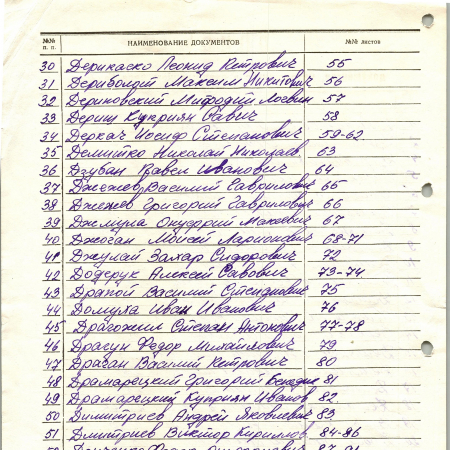 №№ п. п. НАИМЕНОВАНИЕ ДОКУМЕНТОВ №№ листов
30 Дерикаско Леонид Петрович 55
31 Дериболот Максим Никитович 56
32 Дериновский Мифодий 57
33 Дериш Куприян Савич 58
34 Деркач Иосиф Степанович 59-62
35 Демитко Николай Николаев. 63
36 Дзубан Павел Иванович 64
37 Джежев Василий Гаврилович 65
38 Джежев Григорий Гаврилович 66
39 Джмула Онуфрий Макеевич 67
40 Джоган Моисей Ларионович 68-71
41 Джулай Захар Сидорович 72
42 Додерук Алексей Савович 73-74
43 Драной Василий Степанович 75
44 Домуха Иван Иванович 76
45 Драгожин Степан Антонович 77-78
46 Драсун Федор Михайлович 79
47 Драган Василий Петрович 80
48 Драмарецкий Григорий 81
49 Драмарецкий Куприян Иванов 82
50 Димитриев Андрей Яковлевич 83
51 Дмитриев Виктор Кириллов. 84-86